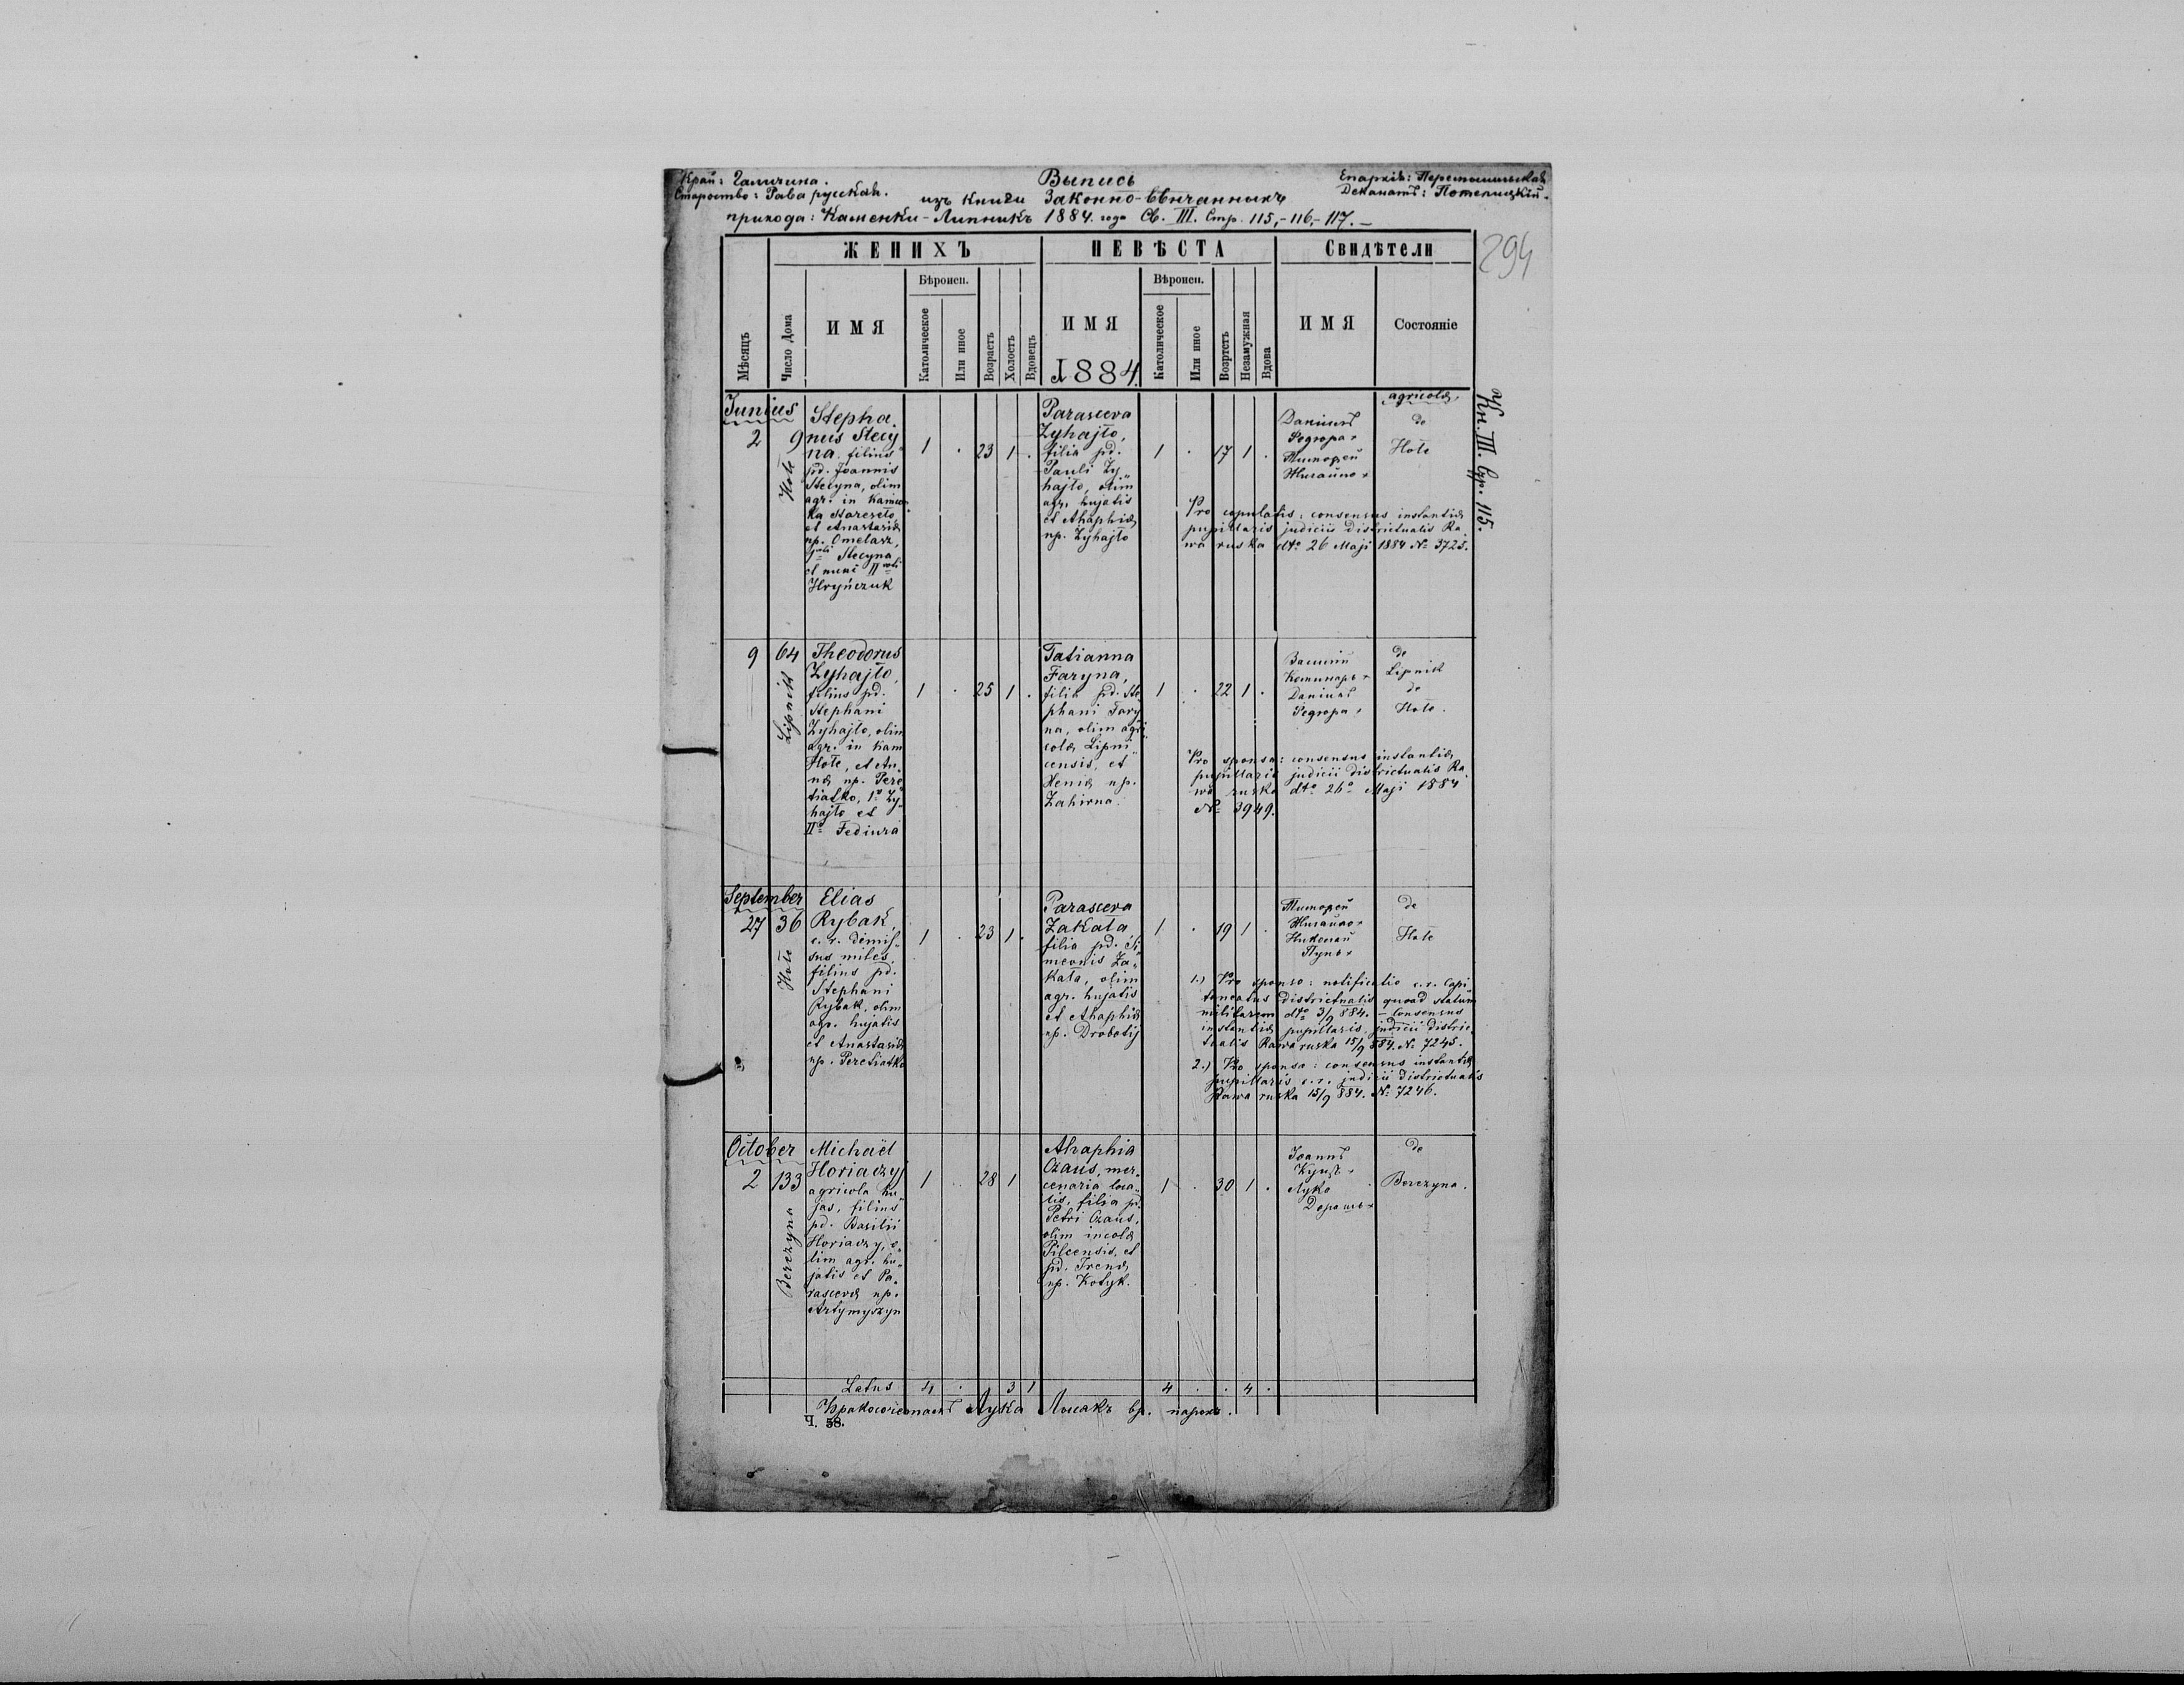 Край: Галичина.
Староство: Рава русская.
Выпись
изъ книги Законно-вѣнчанныхъ
Епархія: Перемышльская
Деканатъ: Потелицкій.
прихода: Каменки-Липникъ 1884. года Св. III. Стр. 115,-116,-117.-
294
ЖЕНИХЪ
НЕВѢСТА
Свидѣтели
Мѣсяцъ
Число Дома
ИМЯ
Вѣроисп.
Католическое
Или иное
Возрастъ
Холостъ
Вдовецъ
ИМЯ
1884.
Вѣроисп.
Католическое
Или иное
Возрастъ
Незамужная
Вдова
ИМЯ
Состояніе
Кн. III. Стр. 115.
Junius
2 9
Hołe
Stepha
nus Stecy
na filius
pd. Joannis
Stecyna, olim
agr. in Kamion
ka Staresioło
et Anastasiæ
np. Omelasz,
Stecyna
et nunc II voti
Hryńczuk
1 . 23 1 .
Parasceva
Zyhajło,
filia pd.
Pauli Zy
hajło, olim
agr. hujatis
et Ahaphiæ
np. Zyhajło
1 . 17 1 .
Даніилъ
Федюра +
Тимофей
Жигайло +
agricolæ
de
Hołe
Pro copulatis: consensus instantiæ
pupillaris judicii districtualis Ra
wa ruska dto 26 Maji 1884 No 3725.
9 64
Lipnik
Theodorus
Zyhajło,
filius pd.
Stephani
Zyhajło, olim
agr. in Kam
Hołe, et An
næ np. Pere
tiatko, Io Zy
hajło et
IIo Fediura
1 . 25 1 .
Tatianna
Faryna,
filia pd. Ste
phani Fary
na, olim agri
colæ Lipni
censis, et
Heniæ np.
Zahirna.
1 . 22 1 .
Василій
+
Даніилъ
Федюра +
de
Lipnik
de
Hołe.
Pro sponsa: consensus instantiæ
pupillaris judicii districtualis Ra
wa ruska dto 26o Maji 1884
No 3949.
September
27 36
Hołe
Elias
Rybak,
c. r. dimis
sus miles,
filius pd.
Stephani
Rybak, olim
agr. hujatis
et Anastasiæ
np. Peretiatko
1 . 23 1 .
Parasceva
Zakała
filia pd. Si
meonis Za
kała, olim
agr. hujatis
et Ahaphiæ
np. Drobotij
1 . 19 1 .
Тимофей
Жигайло +
Николай
Пупъ +
de
Hołe
1.) Pro sponso: notificatio c. r. Capi
taneatus districtualis quoad statum
militarem dto 3/9 884. - Consensus
instantiæ pupillaris judicii distric
tualis Rawa ruska 15/9 884. No 7245.
2.) Pro sponsa: consensus instantiæ
pupillaris c. r. judicii districtualis
Rawa ruska 15/9 884. No 7246.
October
2 133
Berezyna
Michaël
Horiaczy
agricola hu
jas, filius
pd. Basilii
Horiaczy, o
lim agr. hu
jatis et Pa
rascevæ np.
Artymyszyn
1 . 28 1
Ahaphia
Czaus, mer
cenaria loca
lis, filia pd.
Petri Czaus,
olim incolæ
Pilcensis, et
pd. Irenæ
np. Kotyk.
1 . 30 1 .
Іоаннъ
+
Луко
+
de
Berezyna.
Latus 4 . 3 1 4 . . 4 .
Лука вр. парохъ.
Ч. 58.